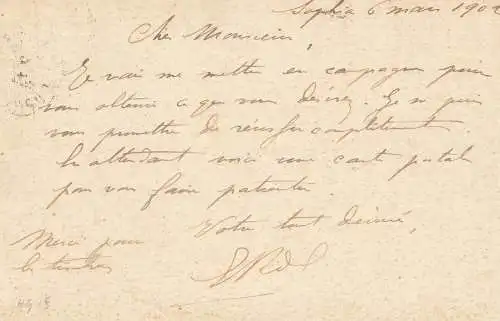 Sophia 6 mars 1902
Cher Monsieur,
Je vais me mettre en campagne pour
vous obtenir ce que vous désirez. Je ne puis
vous promettre de réussir complètement.
En attendant voici une carte postale
pour vous faire patienter.
Votre tout dévoué,
Merci pour
les timbres